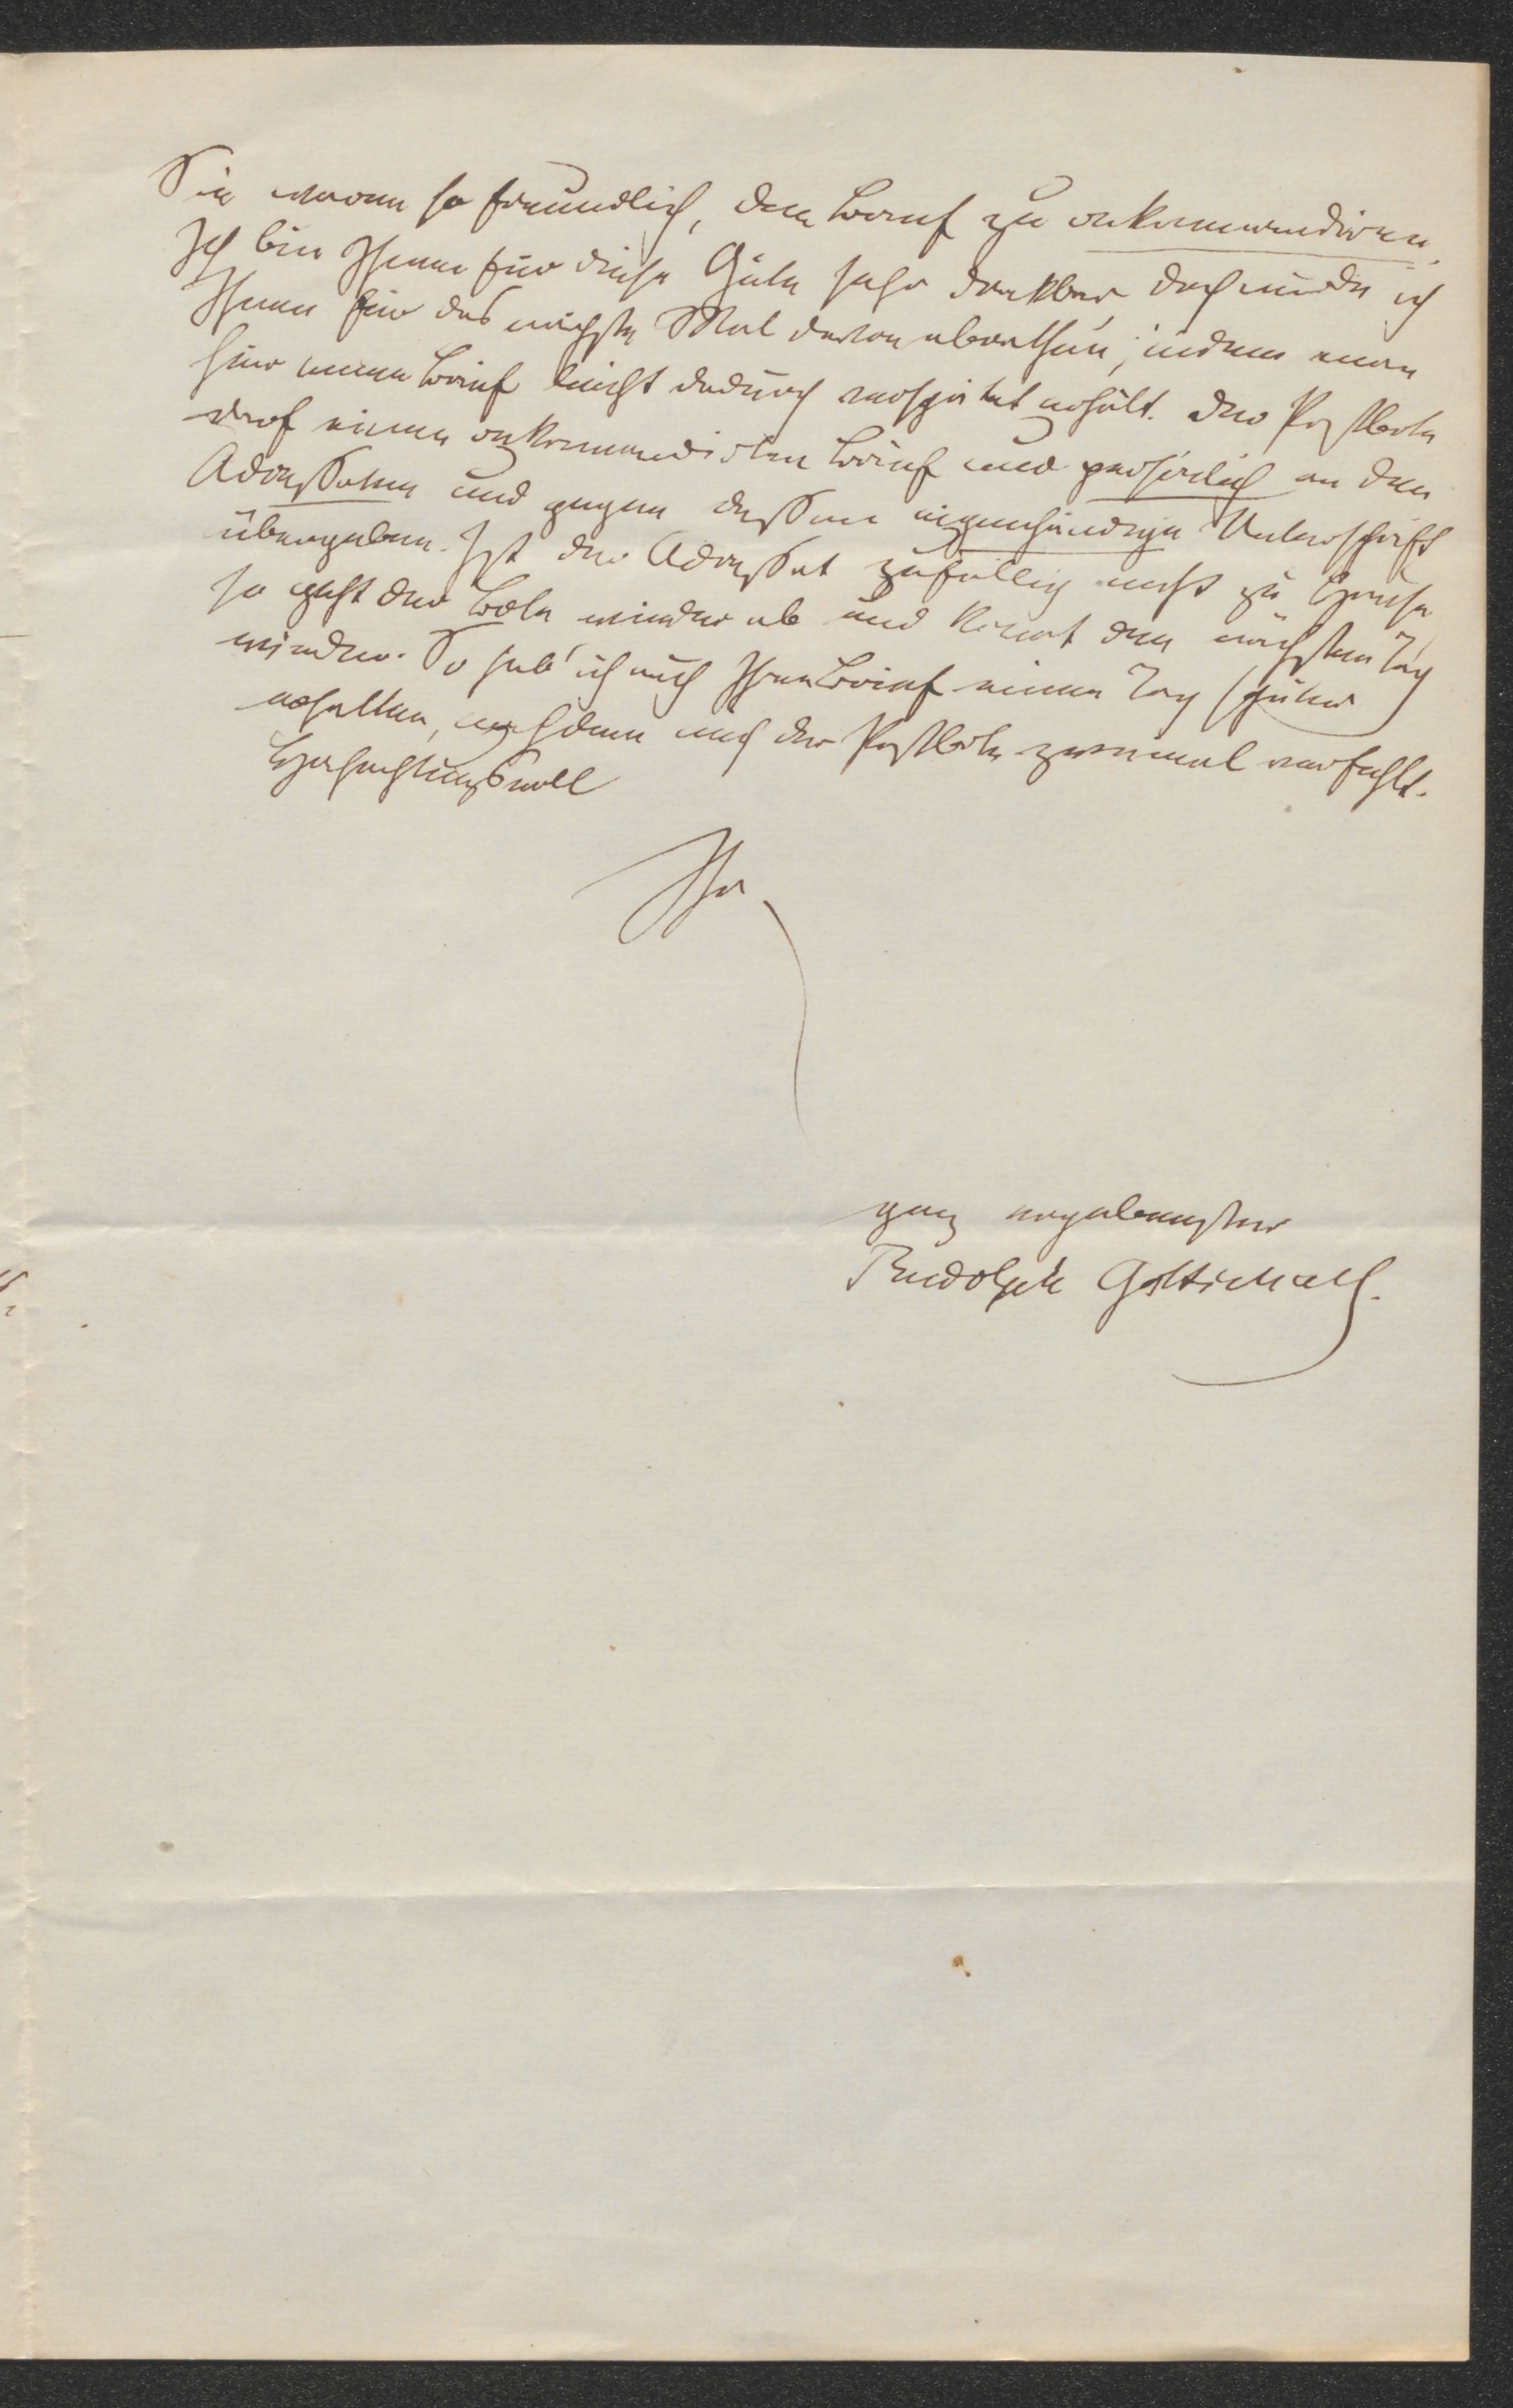 Sie waren so freundlich, den Brief zu rekommandiren.
Ich bin Ihnen für diese Güte sehr dankbar doch würde ich
Ihnen für das nächste Mal davon abrathen, indem man
hier einen Brief leicht dadurch verspätet erhält. Der Postbote
darf einen rekommandirten Brief nur persönlich an den
Adressaten und gegen dessen eigenhändige Unterschrift
übergeben. Ist der Adressat zufällig nicht zu Hause
so geht der Bote wieder ab und kommt den nächsten Tag
wieder. So hab' ich auch Ihren Brief einen Tag später
erhalten, nachdem mich der Postbote zweimal verfehlt.
Hochachtungsvoll
Ihr
ganz ergebenster
Rudolph Gottschall.